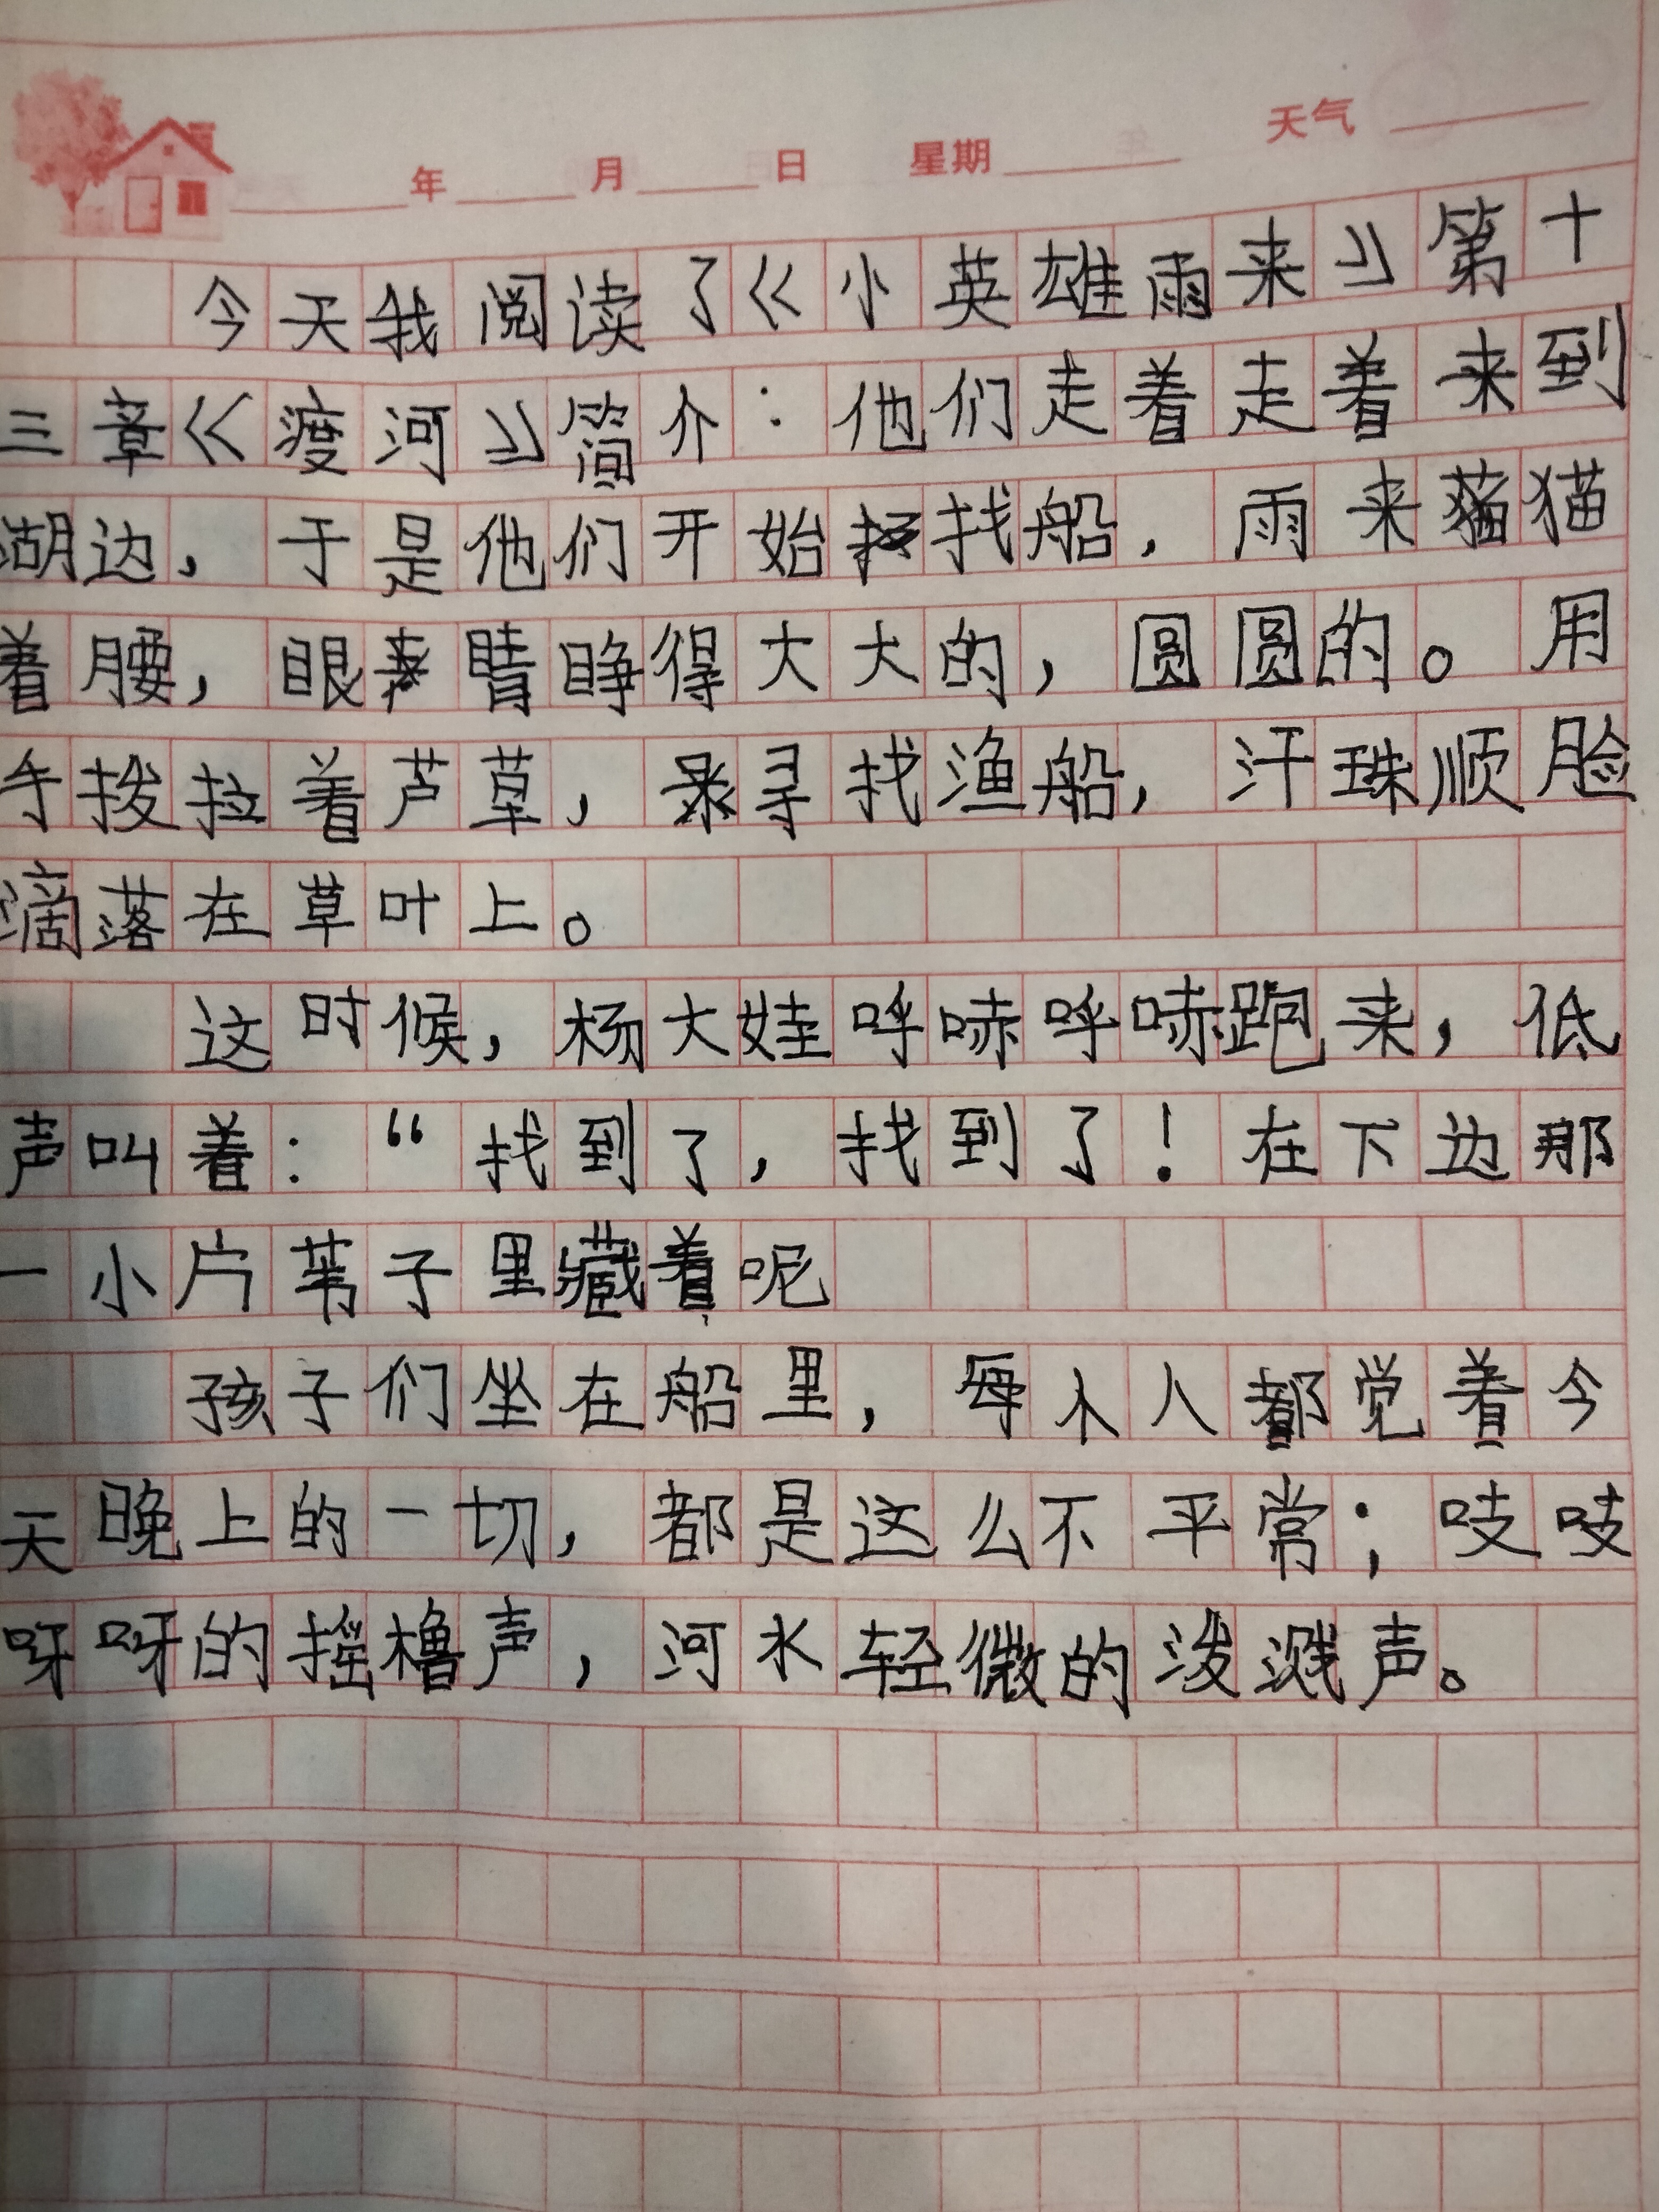 年 月 日 星期 天气
今天我阅读了《小英雄雨来》第十
三章《渡河》简介：他们走着走着来到
湖边，于是他们开始找船，雨来猫
着腰，眼睛睁得大大的，圆圆的。用
手拨拉着芦草，寻找渔船，汗珠顺脸
滴落在草叶上。
这时候，杨大娃呼哧呼哧跑来，低
声叫着：“找到了，找到了！在下边那
一小片苇子里藏着呢
孩子们坐在船里，每个人都觉着今
天晚上的一切，都是这么不平常；吱吱
呀呀的摇橹声，河水轻微的泼溅声。